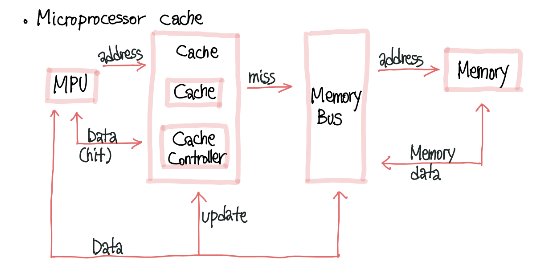 • Microprocessor cache
address
MPU
Data
(hit)
Cache
Cache
Cache
Controller
miss
Memory
Bus
address
Memory
Memory
data
update
Data